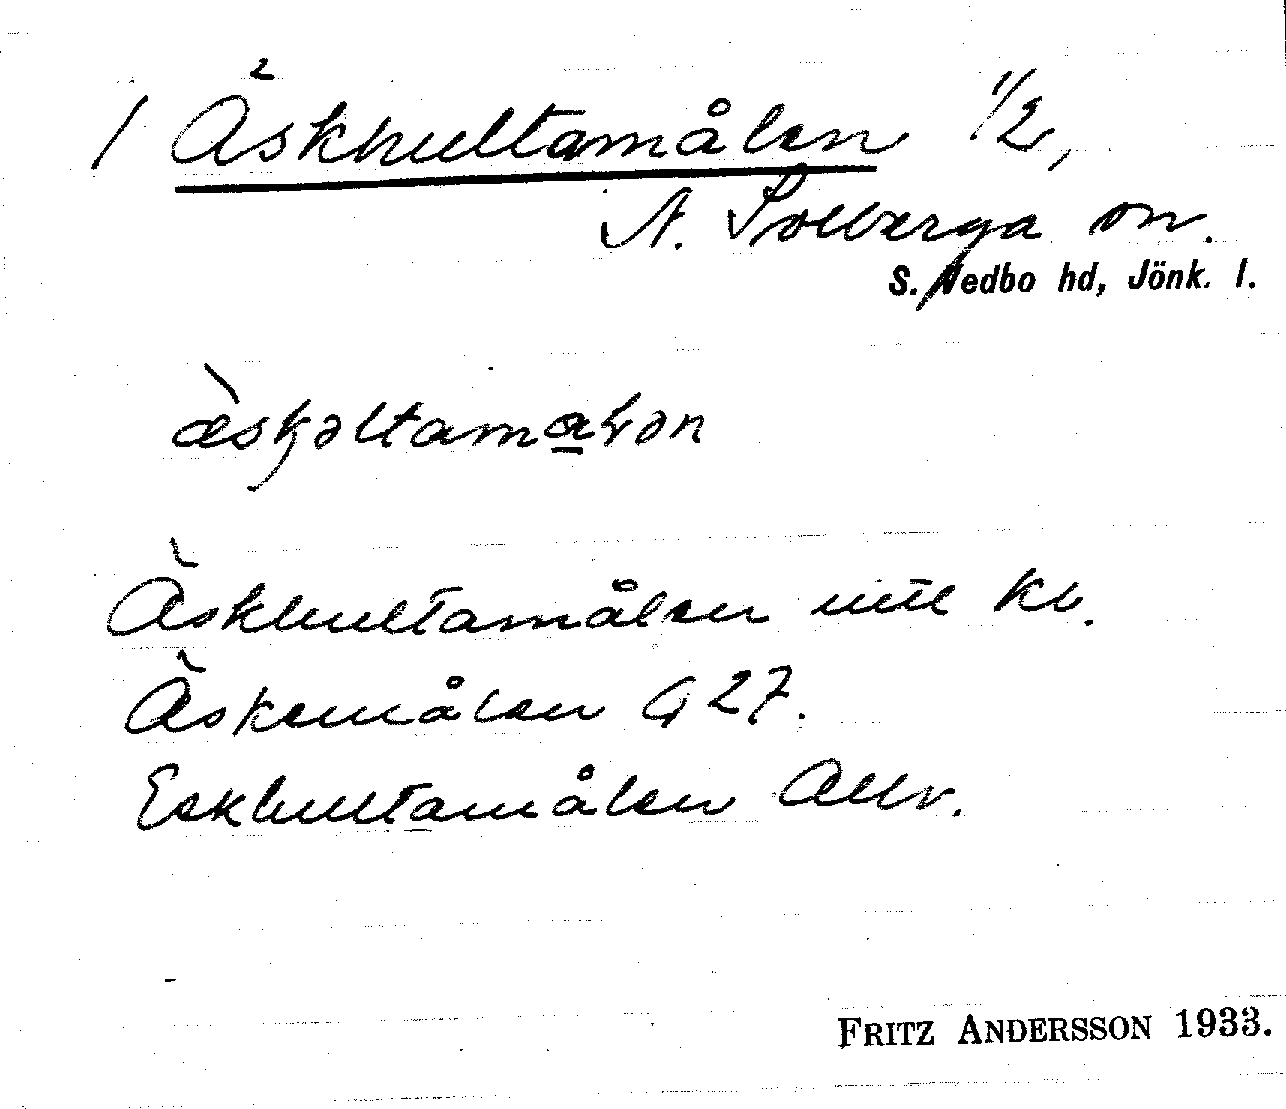 / Äskhultamålen 1/2,
N. Solberga sn.
S. Vedbo hd, Jönk. l.
æskəltamaɽən
Äskhultamålen uttl kb.
Äskemålen G 27.
Eskhultamålen Allv.
FRITZ ANDERSSON 1933.